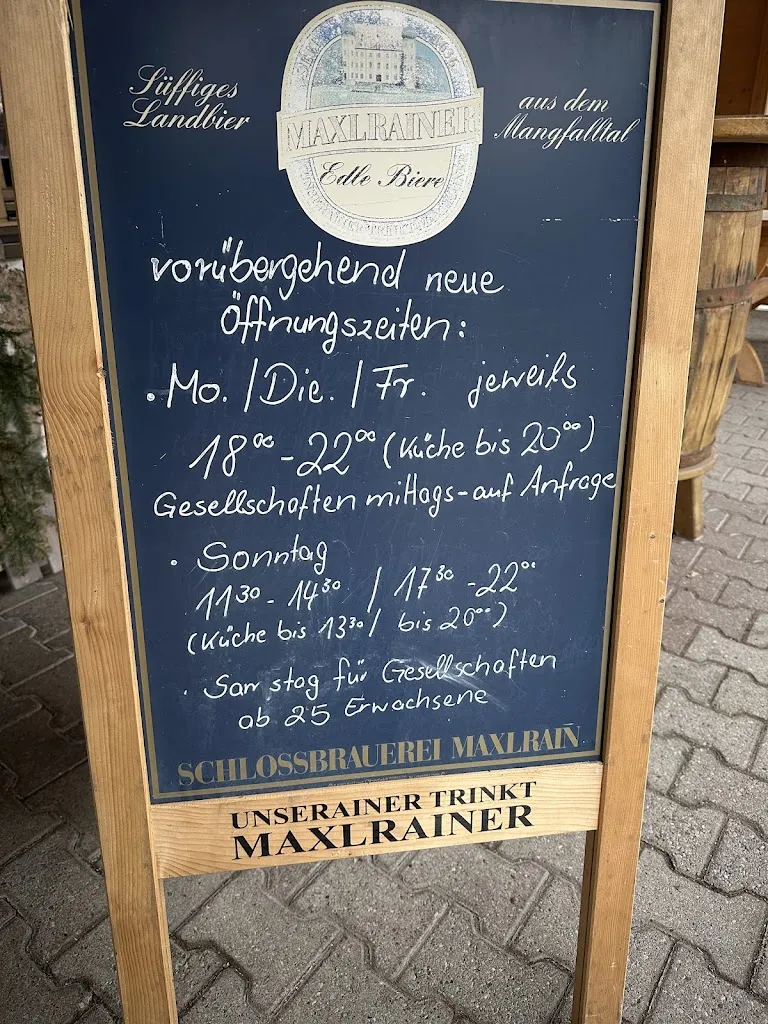 Süffiges
Landbier
aus dem
Mangfalltal
MAXLRAINER
Edle Biere
vorübergehend neue
Öffnungszeiten:
. Mo. / Die. / Fr. jeweils
18⁰⁰ - 22⁰⁰ (Küche bis 20⁰⁰)
Gesellschaften mittags - auf Anfrage
· Sonntag
11³⁰ - 14³⁰ / 17³⁰ - 22⁰⁰
(Küche bis 13³⁰ / bis 20⁰⁰)
· Samstag für Gesellschaften
ab 25 Erwachsene
SCHLOSSBRAUEREI MAXLRAIN
UNSERAINER TRINKT
MAXLRAINER